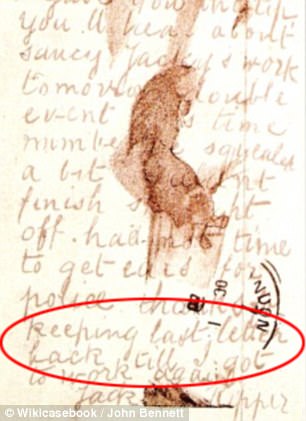 you'll hear about
saucy Jacky's work
tomorrow double
event this time
number squealed
a bit
finish
off. had not time
to get ears for
police
keeping last letter
back till I got
to work again
Jack Ripper
LONDON
OC 1
© Wikicasebook / John Bennett